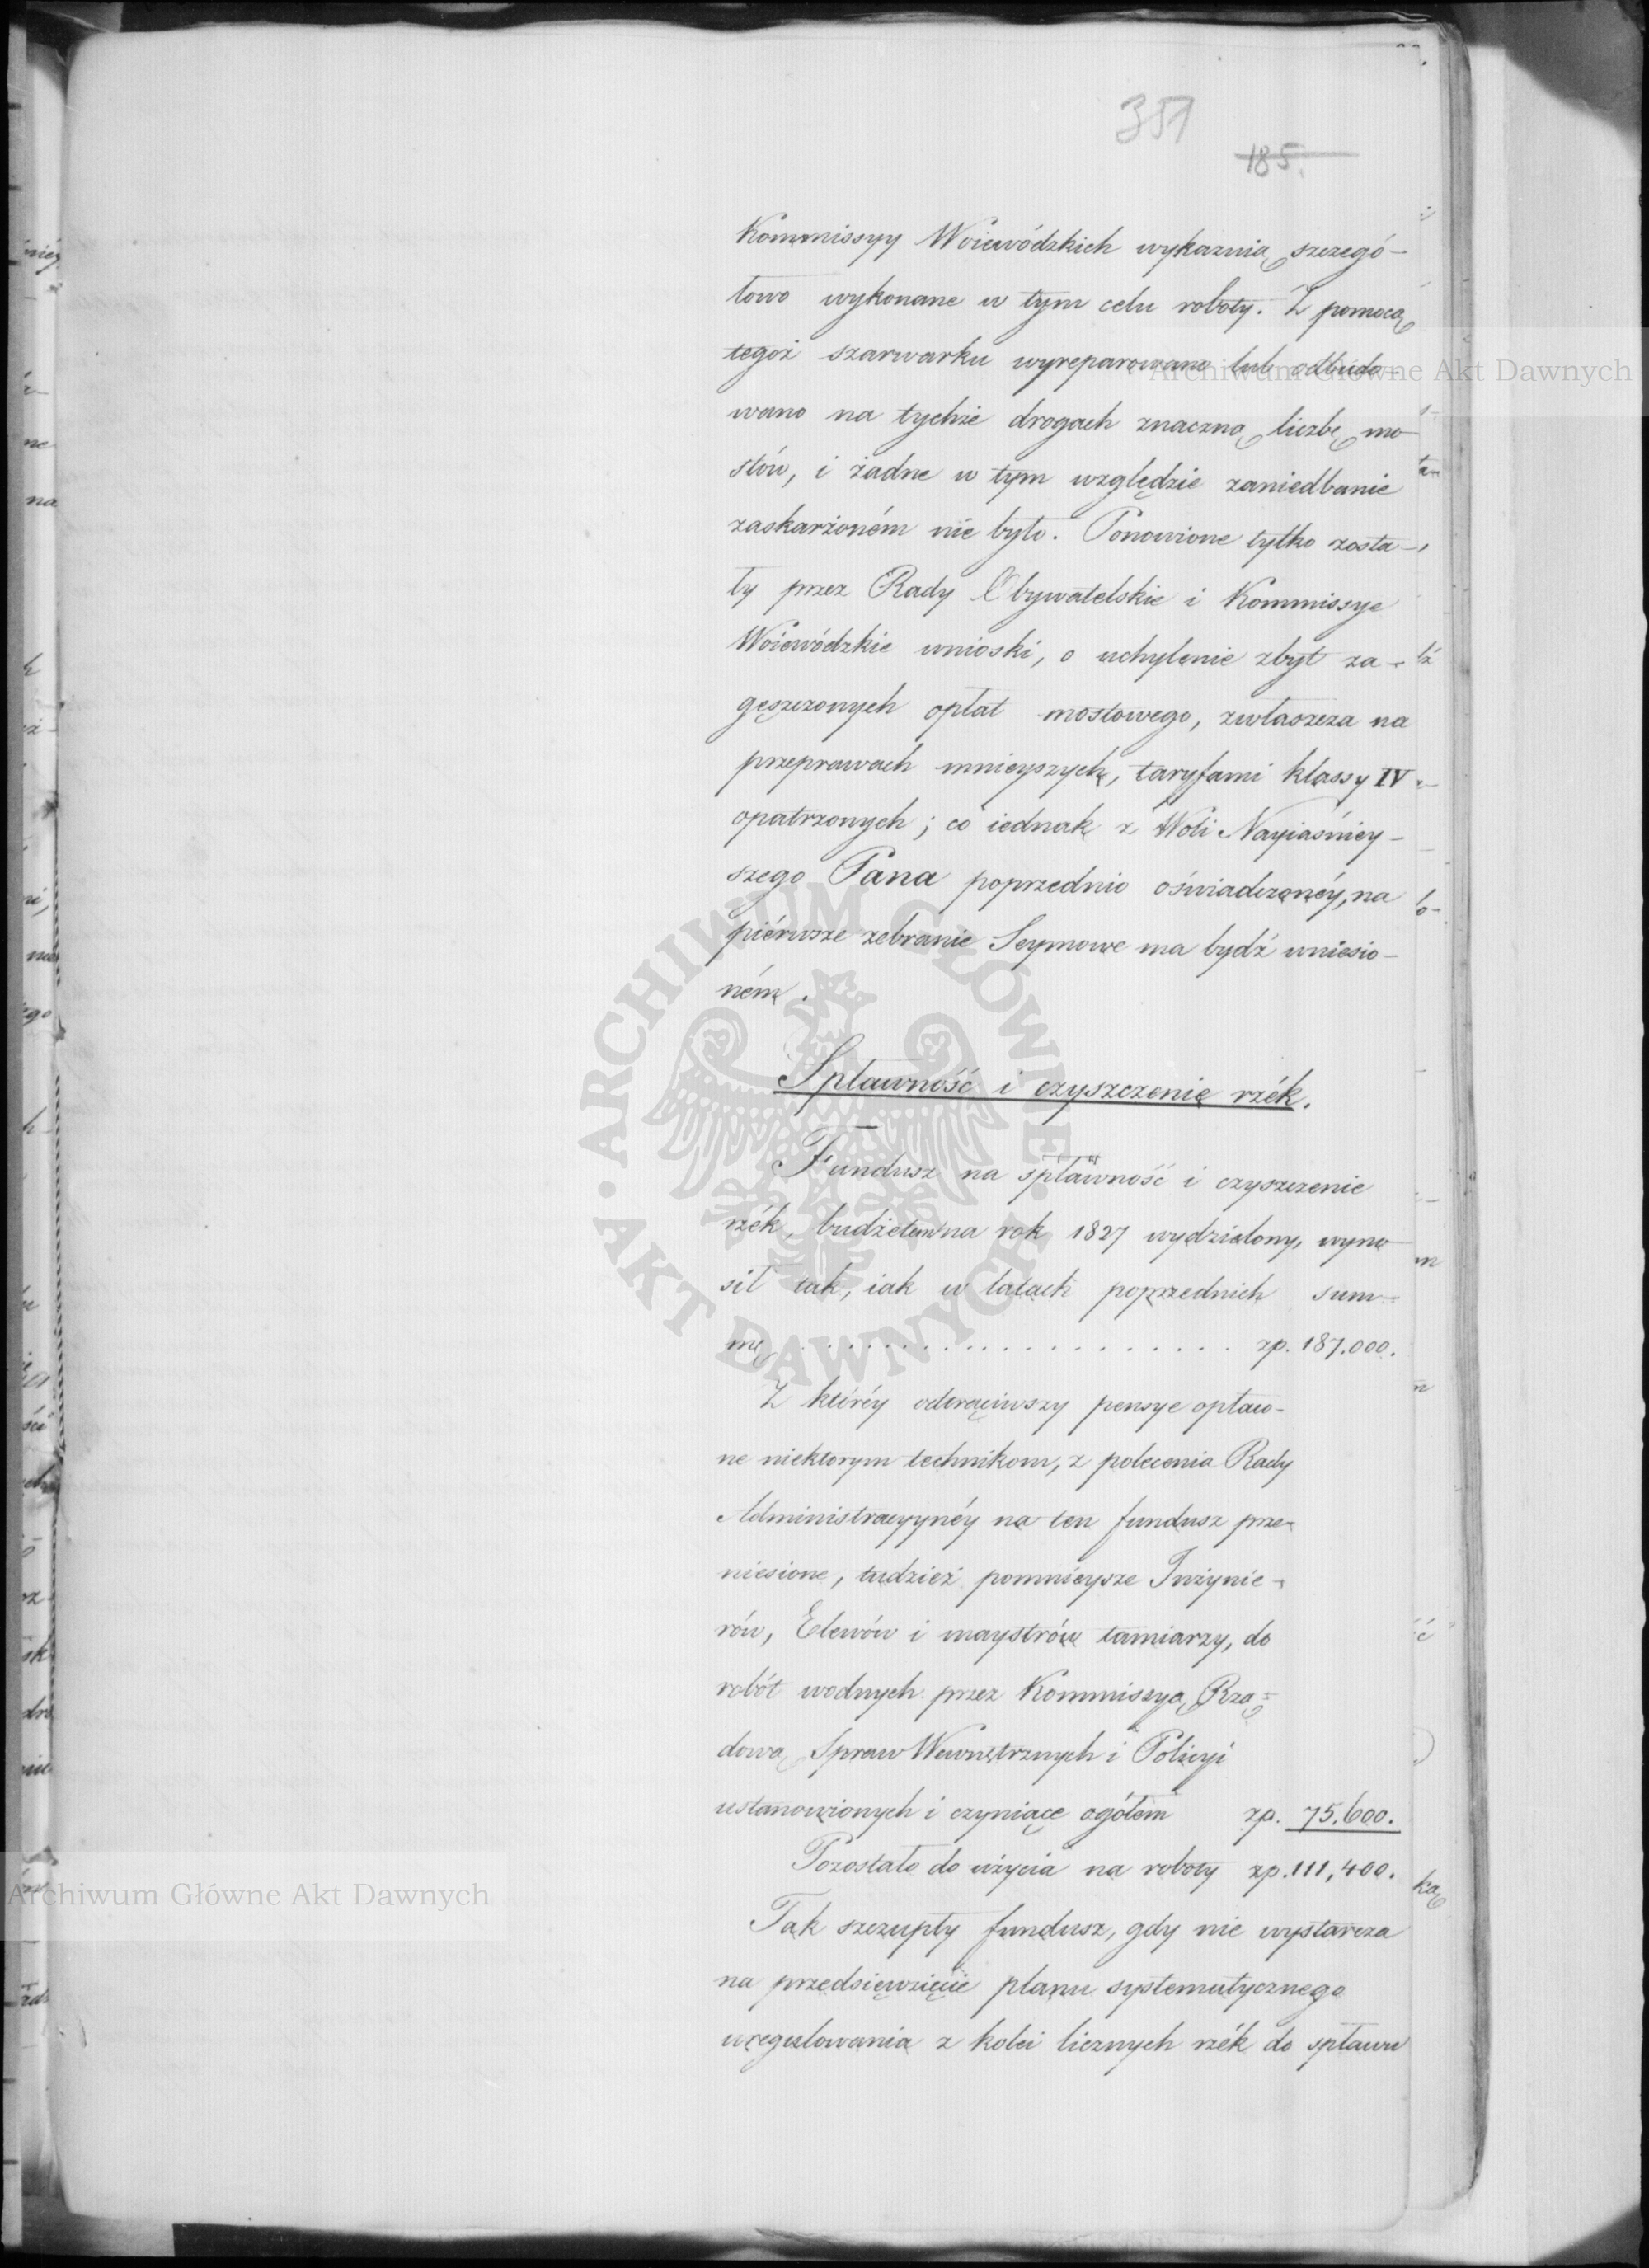 351
185.
Kommissyy Woiewódzkich wykaznią szczegó-
łowo wykonane w tym celu roboty. Z pomocą
tegoż szarwarku wyreparowano lub odbudo-
wano na tychże drogach znaczną liczbę mo-
stów, i żadne w tym względzie zaniedbanie
zaskarżoném nie było. Ponowione tylko zosta-
ły przez Rady Obywatelskie i Kommissye
Woiewódzkie wnioski, o uchylenie zbyt za-
gęszczonych opłat mostowego, zwłaszcza na
przeprawach mnieyszych, taryfami klassy IV
opatrzonych; co iednak z Woli Nayiaśniey-
szego Pana poprzednio oświadczonéy, na
piérwsze zebranie Seymowe ma bydź wniesio-
ném.
Spławność i czyszczenie rzék.
Fundusz na spławność i czyszczenie
rzék, budżetem na rok 1827 wydzielony, wyno-
sił tak, iak w latach poprzednich sum-
mę . . . . . . . . . . . . . . . . . . . . zp. 187.000.
Z któréy odtrąciwszy pensye opłaco-
ne niektorym technikom, z polecenia Rady
Administracyynéy na ten fundusz prze-
niesione, tudzież pomnieysze Inżynie-
rów, Elewów i maystrów tamiarzy, do
robót wodnych przez Kommissyą Rzą-
dową Spraw Wewnętrznych i Policyi
ustanowionych i czyniące ogółem zp. 75.600.
Pozostało do użycia na roboty zp. 111,400.
Tak szczupły fundusz, gdy nie wystarcza
na przedsięwzięcie planu systematycznego
uregulowania z kolei licznych rzék do spławu
Archiwum Główne Akt Dawnych
Archiwum Główne Akt Dawnych
ARCHIWUM GŁÓWNE · AKT DAWNYCH ·